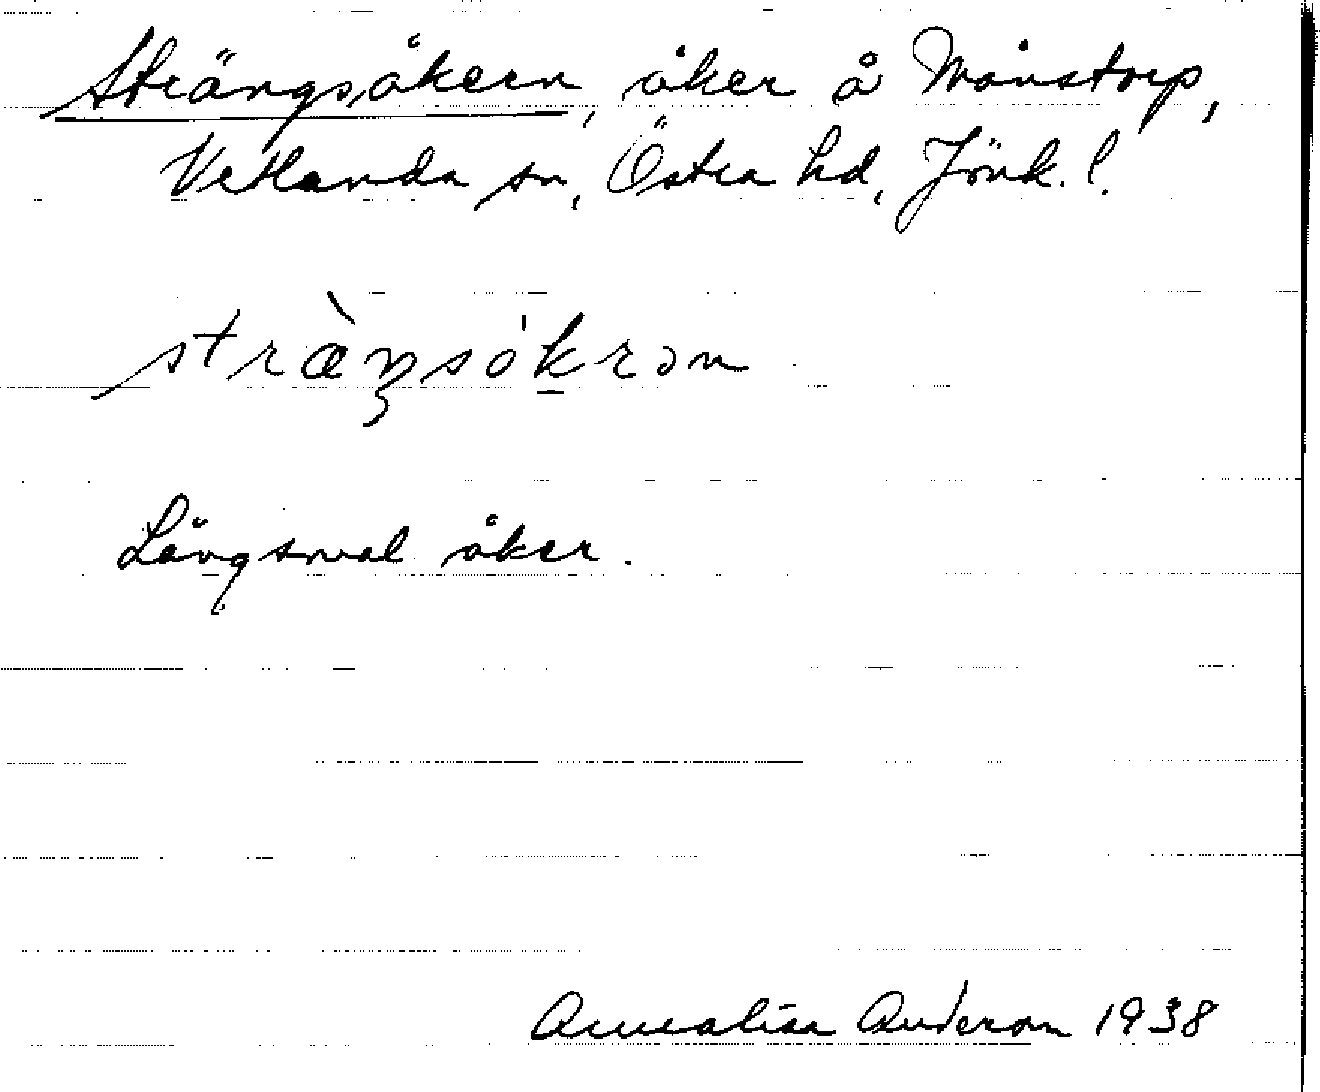 Strängsåkern, åker å Månstorp,
Vetlanda sn, Östra hd, Jönk. l.
stræ̀ŋsókrən
Långsmal åker.
Annalisa Anderson 1938